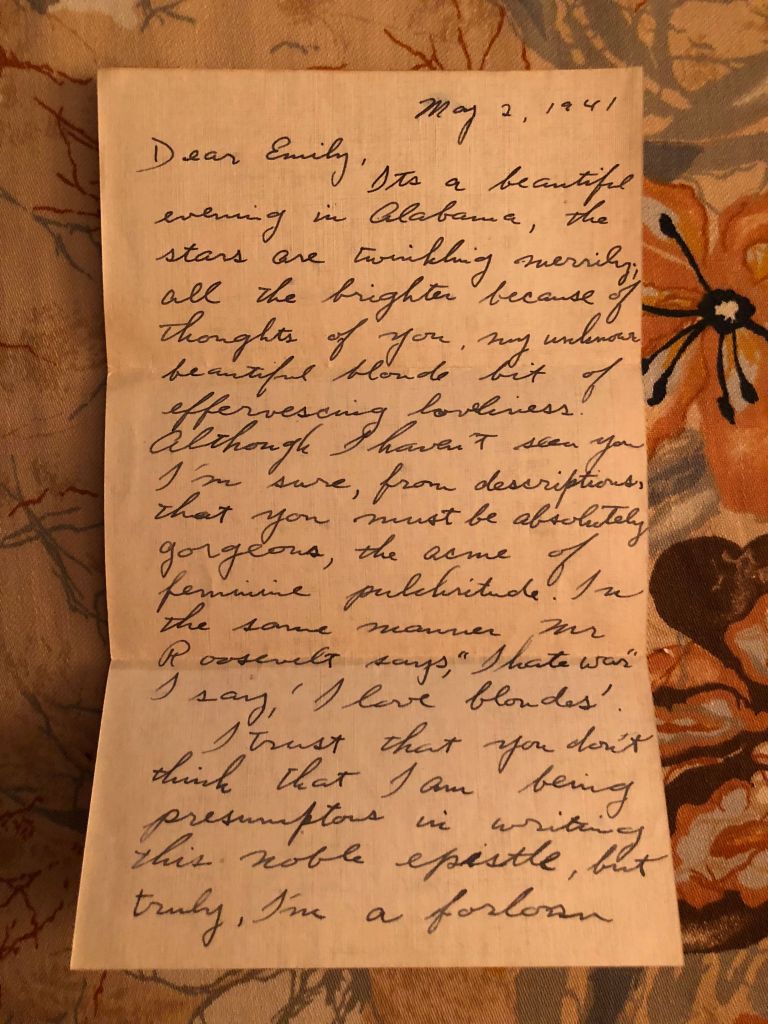 May 2, 1941
Dear Emily,
Its a beautiful
evening in Alabama, the
stars are twinkling merrily,
all the brighter because of
thoughts of you, my unknown
beautiful blonde bit of
effervescing loveliness.
Although I haven't seen you
I'm sure, from descriptions,
that you must be absolutely
gorgeous, the acme of
feminine pulchritude. In
the same manner Mr
Roosevelt says, "I hate war"
I say, 'I love blondes'.
I trust that you don't
think that I am being
presumptous in writing
this noble epistle, but
truly, I'm a forlorn